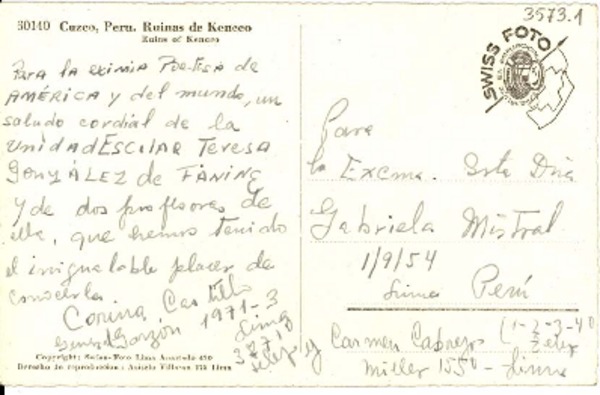 3573.1
60140 Cuzco, Peru. Ruinas de Kencco
Ruins of Kencco
SWISS FOTO
Para la eximia Poetisa de
AMÉRICA y del mundo, un
saludo cordial de la
Unidad Escolar Teresa
GONZÁLEZ de FÁNING
y de dos profesores de
ella, que hemos tenido
el inigualable placer de
conocerla.
Corina Castillo
Garzón 1971-3
Lima
Para
la Excma. Srta Dña
Gabriela Mistral
1/9/54
Lima Perú
Carmen Cabrejos
Miller 1550 - Lima
Copyright: Swiss-Foto Lima Apartado
Derecho de reproduccion: Lima